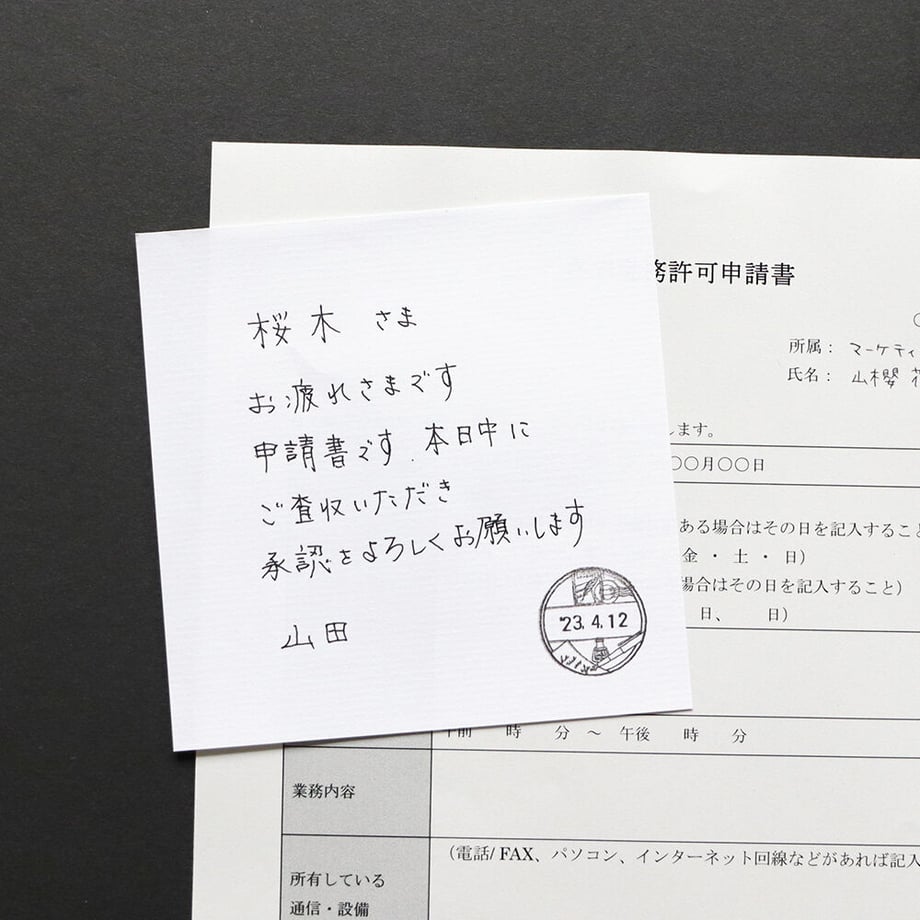 桜木 さま
お疲れさまです
申請書です.本日中に
ご査収いただき
承認をよろしくお願いします
山田
'23.4.12
務許可申請書
所属：マーケティ
氏名：山櫻 花
します。
〇〇月〇〇日
ある場合はその日を記入すること
金 ・ 土 ・ 日）
場合はその日を記入すること）
日、 日）
午前 時 分 ～ 午後 時 分
業務内容
（電話/ FAX、パソコン、インターネット回線などがあれば記入
所有している
通信・設備